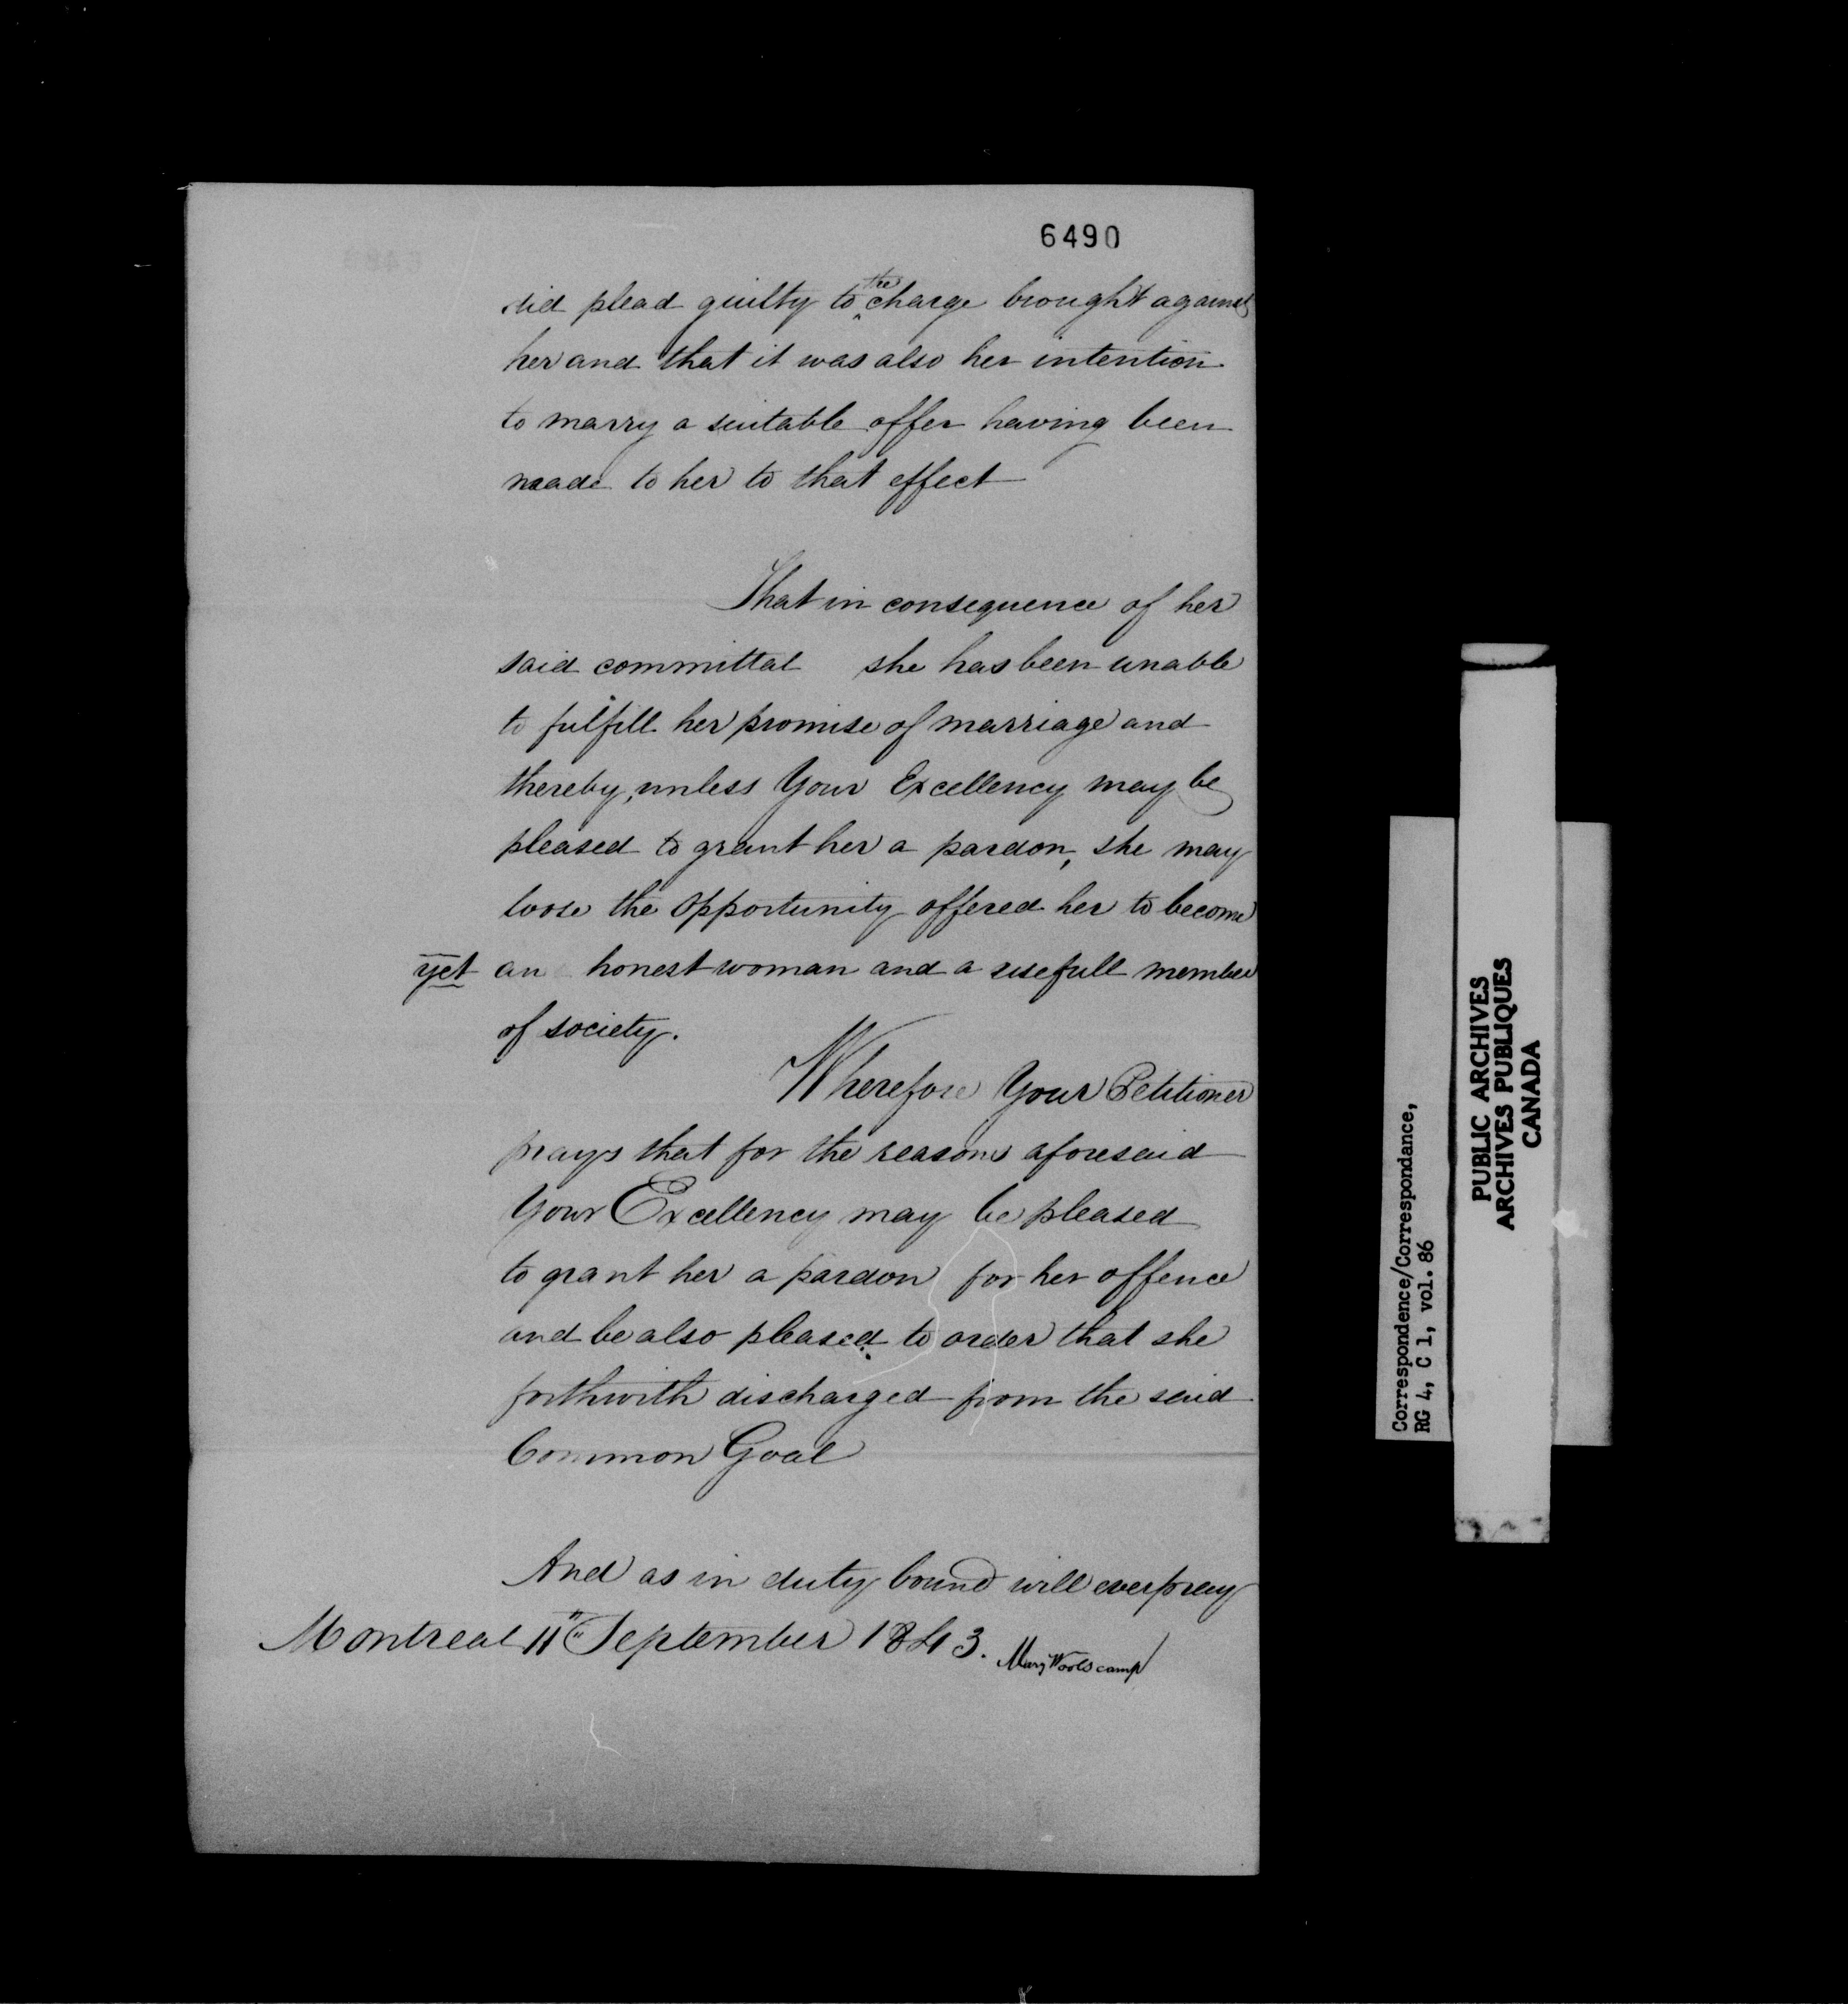 6490
did plead guilty to the charge brought against
her and that it was also her intention
to marry a suitable offer having been
made to her to that effect
That in consequence of her
said committal she has been unable
to fulfill her promise of marriage and
thereby, unless Your Excellency may be
pleased to grant her a pardon, she may
loose the opportunity offered her to become
yet an honest woman and a usefull member
of society.
Wherefore Your Petitioner
prays that for the reasons aforesaid
Your Excellency may be pleased
to grant her a pardon for her offence
and be also pleased to order that she
forthwith discharged from the said
Common Goal
And as in duty bound will ever pray
Montreal 11" September 1843. Mary Woolscamp
Correspondence/Correspondance,
RG 4, C 1, vol. 86
PUBLIC ARCHIVES
ARCHIVES PUBLIQUES
CANADA